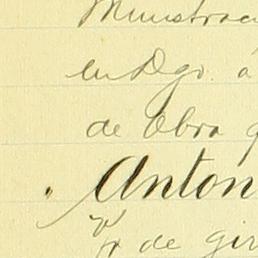 Ministrac
en Dgo. a
de Obra q
Anton
de gir